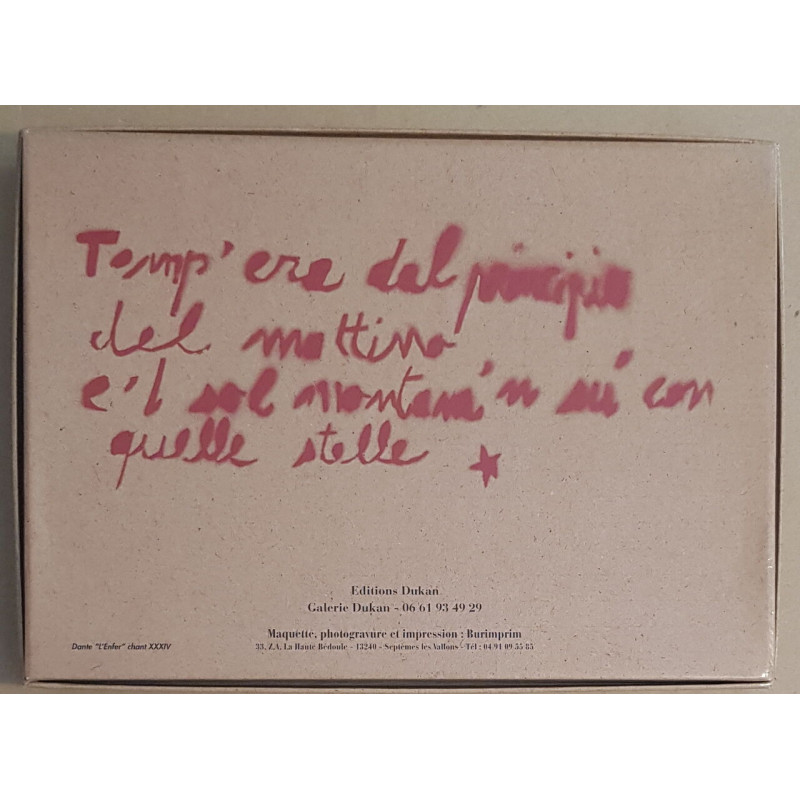 Temp' era dal principio
del mattino
e'l sol montava'n sú con
quelle stelle
Editions Dukan
Galerie Dukan - 06 61 93 49 29
Maquette, photogravure et impression : Burimprim
Dante "L'Enfer" chant XXXIV
33, Z.A. La Haute Bédoule - 13240 - Septèmes les Vallons - Tél : 04 91 09 55 85